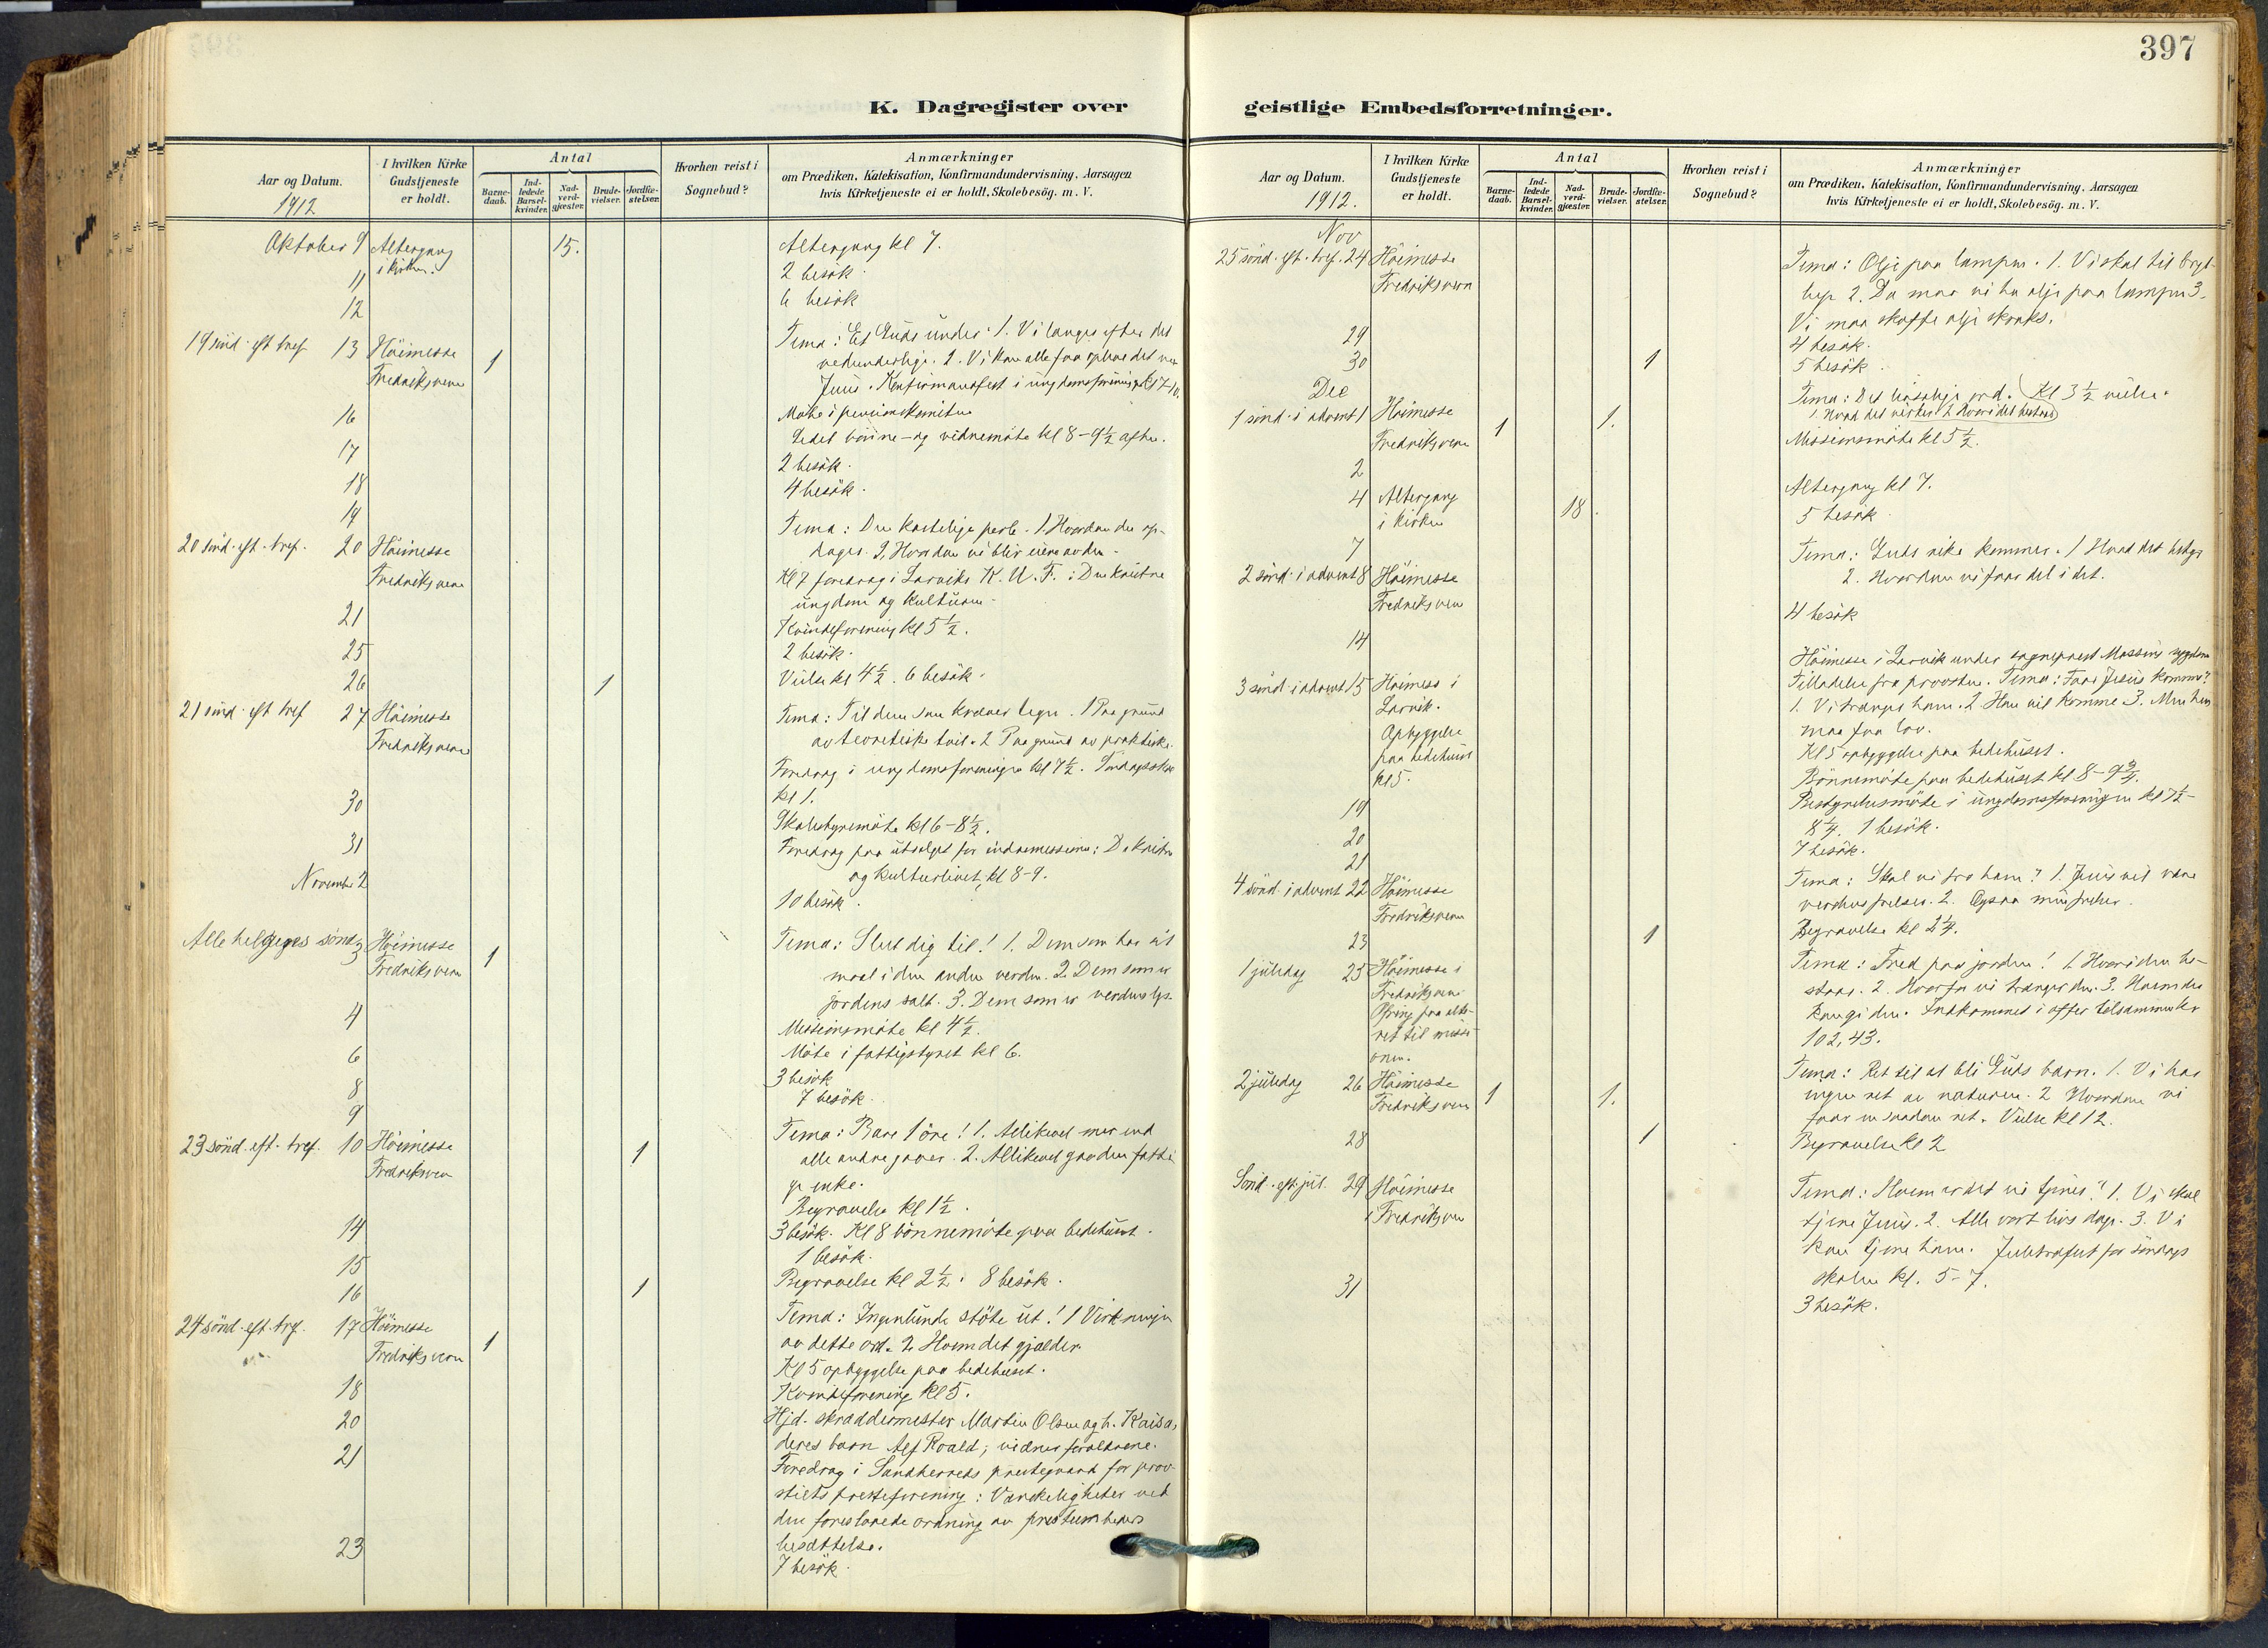 397
K. Dagregister over
geistlige Embedsforretninger.
Aar og Datum.
1912
I hvilken Kirke Gudstjeneste er holdt.
Antal
Barnedaab.
Indledede Barselkvinder.
Nadverdgjæster.
Brudevielser.
Jordfæstelser.
Hvorhen reist i Sognebud?
Anmærkninger
om Prædiken, Katekisation, Konfirmandundervisning, Aarsagen
hvis Kirketjeneste ei er holdt, Skolebesög. m. V.
Oktober 9 Altergang i kirken. 15. Altergang kl 7.
11 2 besök.
12 6 besök
19 sönd. eft. tref. 13 Höimesse Fredriksvern 1 Tema: Et Guds under. 1. Vi længes efter det
vedunderlige. 2. Vi kan alle faa opleve det ved
Jesus. Konfirmandfest i ungdomsforeningen kl 7-10.
16 Möte i
Ledet bönne- og vidnemöte kl 8-9½ aften.
17 2 besök.
18 4 besök.
19
20 sönd. eft. tref. 20 Höimesse Fredriksvern Tema: Den kostelige perle. 1. Hvordan den op-
dages. 2. Hvordan vi blir eiere av den.
Kl 7 foredrag i Larviks K. U. F.: Den kristne
ungdom og kulturen.
21 Kvindeforening kl 5½.
25 2 besök.
26 1 Vielse kl 4½. 6 besök.
21 sönd. eft. tref 27 Höimesse Fredriksvern Tema: Til dem som kræver tegn. 1 Paa grund
av teoretisk tvil. 2 Paa grund av praktisk.
Foredrag i ungdomsforeningen kl 7½. Söndagsskole
kl 1.
30 Skolestyremöte kl 6-8½.
31 Foredrag paa utsalget for indremissionen: De kristne
og kulturlivet, kl 8-9.
November 2 10 besök.
Alle helgenes sönd. 3 Höimesse Fredriksvern 1 Tema: Slut dig til! 1. Dem som har sit
maal i den anden verden. 2. Dem som er
jordens salt. 3. Dem som er verdens lys.
4 Missionsmöte kl 4½.
Möte i fattigstyret kl 6.
6 3 besök
8 7 besök.
9
23 sönd. eft. tref. 10 Höimesse Fredriksvern 1 Tema: Bare 1 öre! 1. Allikevel mer end
alle andre gaver. 2. Allikevel gav den fatti-
ge enke.
Begravelse kl 1½.
14 3 besök. Kl 8 bönnemöte paa bedehuset.
15 1 besök.
16 1 Begravelse kl 2½. 8 besök.
24 sönd. eft. tref. 17 Höimesse Fredriksvern 1 Tema: Ingenlunde stöte ut! 1 Virkningen
av dette ord. 2. Hvem det gjælder.
Kl 5 opbyggelse paa bedehuset.
18 Kvindeforening kl 5.
20 Hjd. skræddermester Martin Olsen og h. Kaisa,
deres barn Alf Roald; vidner forældrene.
21 Foredrag i Sandherreds prestegaard for prov-
stiets presteforening: Vanskeligheter ved
den foreslaaede ordning av presteembeders
besættelse.
23 7 besök.
Aar og Datum.
1912.
I hvilken Kirke Gudstjeneste er holdt.
Antal
Barnedaab.
Indledede Barselkvinder.
Nadverdgjæster.
Brudevielser.
Jordfæstelser.
Hvorhen reist i Sognebud?
Anmærkninger
om Prædiken, Katekisation, Konfirmandundervisning, Aarsagen
hvis Kirketjeneste ei er holdt, Skolebesög. m. V.
Nov
25 sönd. eft. tref. 24 Höimesse Fredriksvern Tema: Olje paa lampen. 1. Vi skal til bryl-
lup 2. Da maa vi ha olje paa lampen 3.
Vi maa skaffe olje straks.
29 4 besök.
30 1 5 besök.
Dec
1 sönd. i advent 1 Höimesse Fredriksvern 1 1. Tema: Det ord. Kl 3½ vielse.
1. Hvad det virker 2 Hvori det bestaar
2 Missionsmöte kl 5½.
4 Altergang i kirken 18. Altergang kl 7.
7 5 besök
2 sönd. i advent 8 Höimesse Fredriksvern Tema: Guds rike kommer. 1 Hvad det betyr
2. Hvordan vi faar del i det.
14 4 besök
3 sönd. i advent 15 Höimesse i Larvik. Opbyggelse paa bedehuset kl 5. Höimesse i Larvik under sogneprest sygdom
Tilladelse fra provsten. Tema: Faar Jesus komme?
1. Vi trænger ham. 2. Han vil komme 3. Men han
maa faa lov.
Kl 5 opbyggelse paa bedehuset.
19 Bönnemöte paa bedehuset kl 8-9¾.
20 Bestyrelsesmöte i ungdomsforeningen kl 7½-
8¼. 1 besök.
21 7 besök.
4 sönd. i advent 22 Höimesse Fredriksvern Tema: Skal vi tro ham? 1. Jesus vil være
verdens frelser. 2. Ogsaa min frelser.
23 1 Begravelse kl 2¼.
1 juledag 25 Höimesse i Fredriksvern. Ofring paa alte-
ret til missi-
onen. Tema: Fred paa jorden! 1. Hvori den be-
staar. 2. Hvorfor vi trænger den. 3. Hvem der
kan gi den. Indkommet i offer tilsammen kr
102,43.
2 juledag 26 Höimesse Fredriksvern 1 1. Tema: Ret til at bli Guds barn. 1. Vi har
ingen ret av naturen. 2 Hvordan vi
faar en saadan ret. Vielse kl 12.
28 1 Begravelse kl 2
Sönd. eft. jul. 29 Höimesse i Fredriksvern Tema: Hvem er det vi tjener? 1. Vi skal
tjene Jesus. 2. Alle vort livs dage. 3. Vi
kan tjene ham. Juletræfest for söndags
skolen kl. 5-7.
31 3 besök.